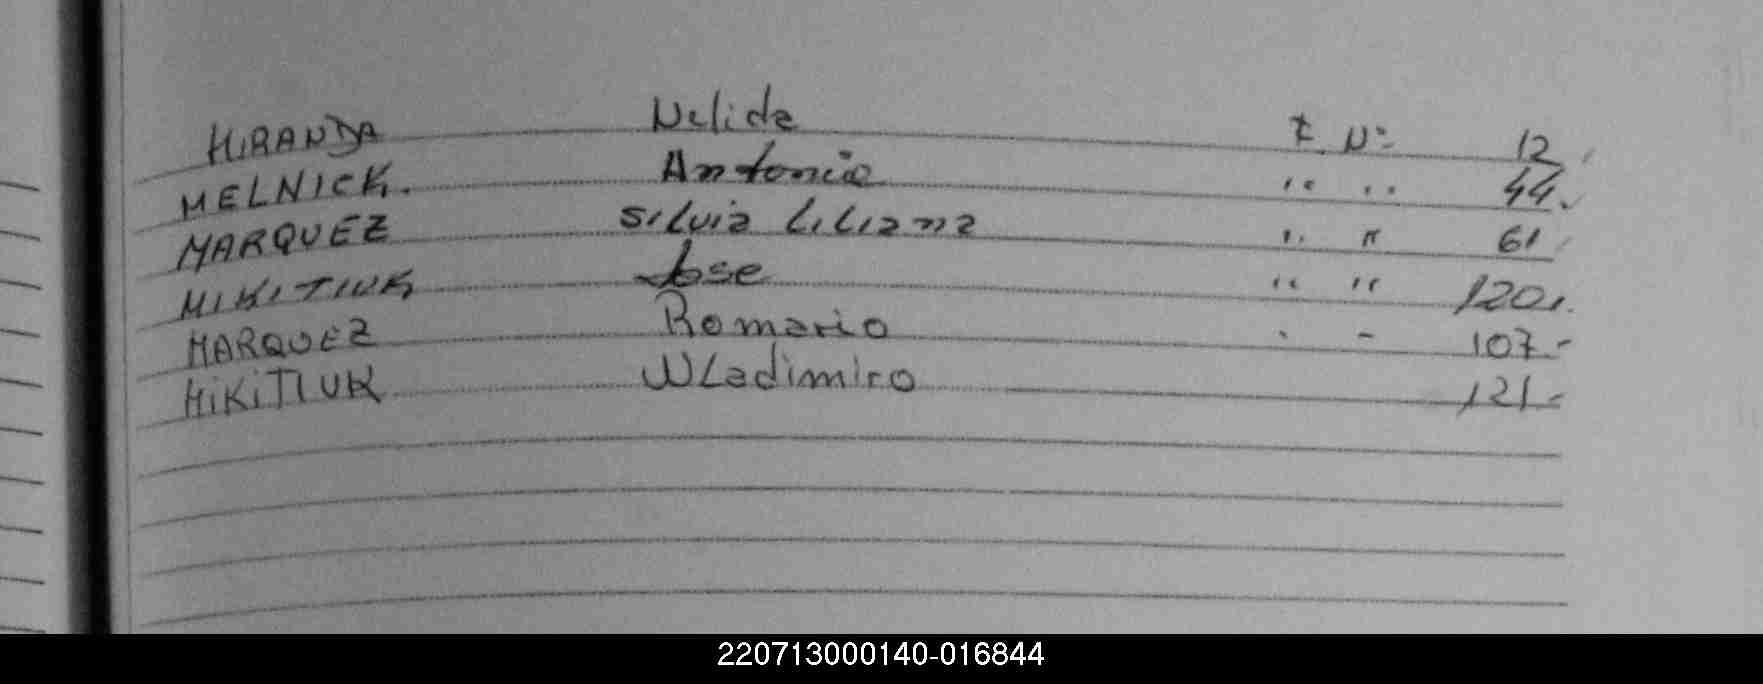 MIRANDA Nelida F. Nº 12
MELNICK. Antonia " " 44.
MARQUEZ Silvia Liliana " " 61
MIKITIUK Jose " " 120.
MARQUEZ Romario " " 107.-
MIKITIUK Wladimiro 121.-
220713000140-016844